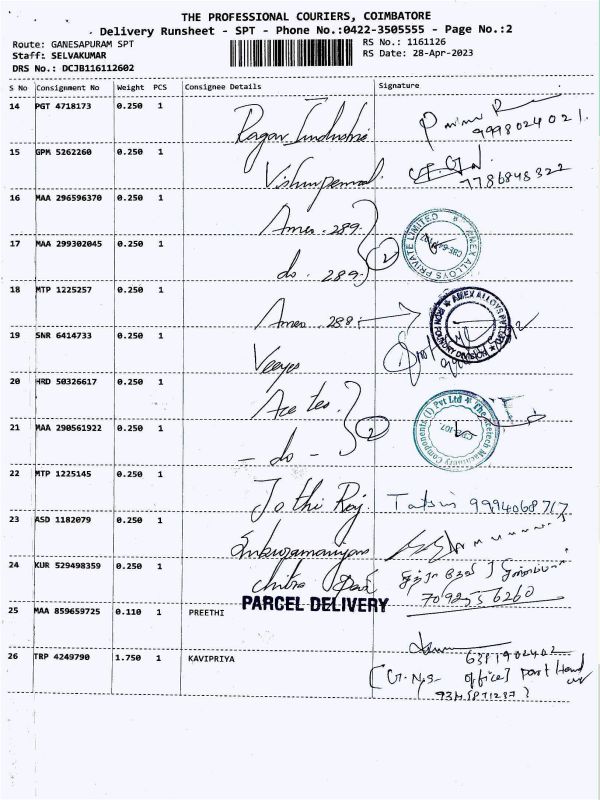 THE PROFESSIONAL COURIERS, COIMBATORE
Delivery Runsheet - SPT - Phone No.:0422-3505555 - Page No.:2
Route: GANESAPURAM SPT
Staff: SELVAKUMAR
DRS No.: DCJB116112602
RS No.: 1161126
RS Date: 28-Apr-2023
S No Consignment No Weight PCS Consignee Details Signature
14 PGT 4718173 0.250 1
9998024021.
15 GPM 5262260 0.250 1
7786848322
16 MAA 296596370 0.250 1 Amex. 289.
AMEX ALLOYS PRIVATE LIMITED
CBE-641 107
17 MAA 299302045 0.250 1 do. 289. 2
18 MTP 1225257 0.250 1 Amex. 288.
AMEX ALLOYS PVT LTD
IRON FOUNDRY DIVISION
19 SNR 6414733 0.250 1 Veeyes
20 HRD 50326617 0.250 1 Ace tec.
The Acetech Machinery Components (I) Pvt Ltd
21 MAA 290561922 0.250 1 - do - 2
22 MTP 1225145 0.250 1 Jothi Raj. 9994068717
23 ASD 1182079 0.250 1
24 KUR 529498359 0.250 1 Chitra
7092556260
PARCEL DELIVERY
25 MAA 859659725 0.110 1 PREETHI
6381902402
26 TRP 4249790 1.750 1 KAVIPRIYA
office]